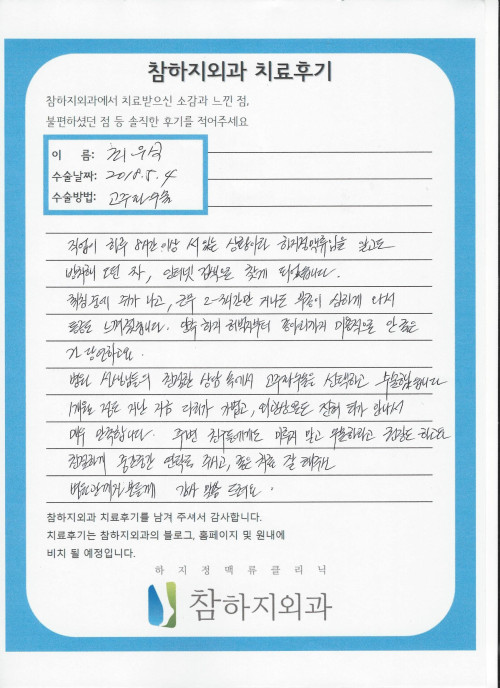 참하지외과 치료후기
참하지외과에서 치료받으신 소감과 느낀 점,
불편하셨던 점 등 솔직한 후기를 적어주세요
이 름: 최우식
수술날짜: 2018. 5. 4
수술방법: 고주파수술
직업이 하루 8시간 이상 서 있는 상황이라 하지정맥류임을 알고도
방치해 오던 차, 인터넷 검색으로 찾게 되었습니다.
책임 표에 쥐가 나고, 근무 2~3시간만 지나도 부종이 심하게 와서
통증도 느껴졌습니다. 양쪽 하지 허벅지부터 종아리까지 미용적으로 안 좋은
건 당연하고요.
병원 선생님들의 친절한 상담 속에서 고주파수술을 선택하고 수술했습니다
1개월 정도 지난 지금 다리가 가볍고, 외관상으로도 전혀 티가 안나서
매우 만족합니다. 주변 친구들에게도 미루지 말고 수술하라고 추천도 하고요
친절하게 중간중간 연락도 주시고, 좋은 치료 잘 해주신
병원 관계자분들께 감사 말씀 드려요.
참하지외과 치료후기를 남겨 주셔서 감사합니다.
치료후기는 참하지외과의 블로그, 홈페이지 및 원내에
비치 될 예정입니다.
하지정맥류클리닉
참하지외과